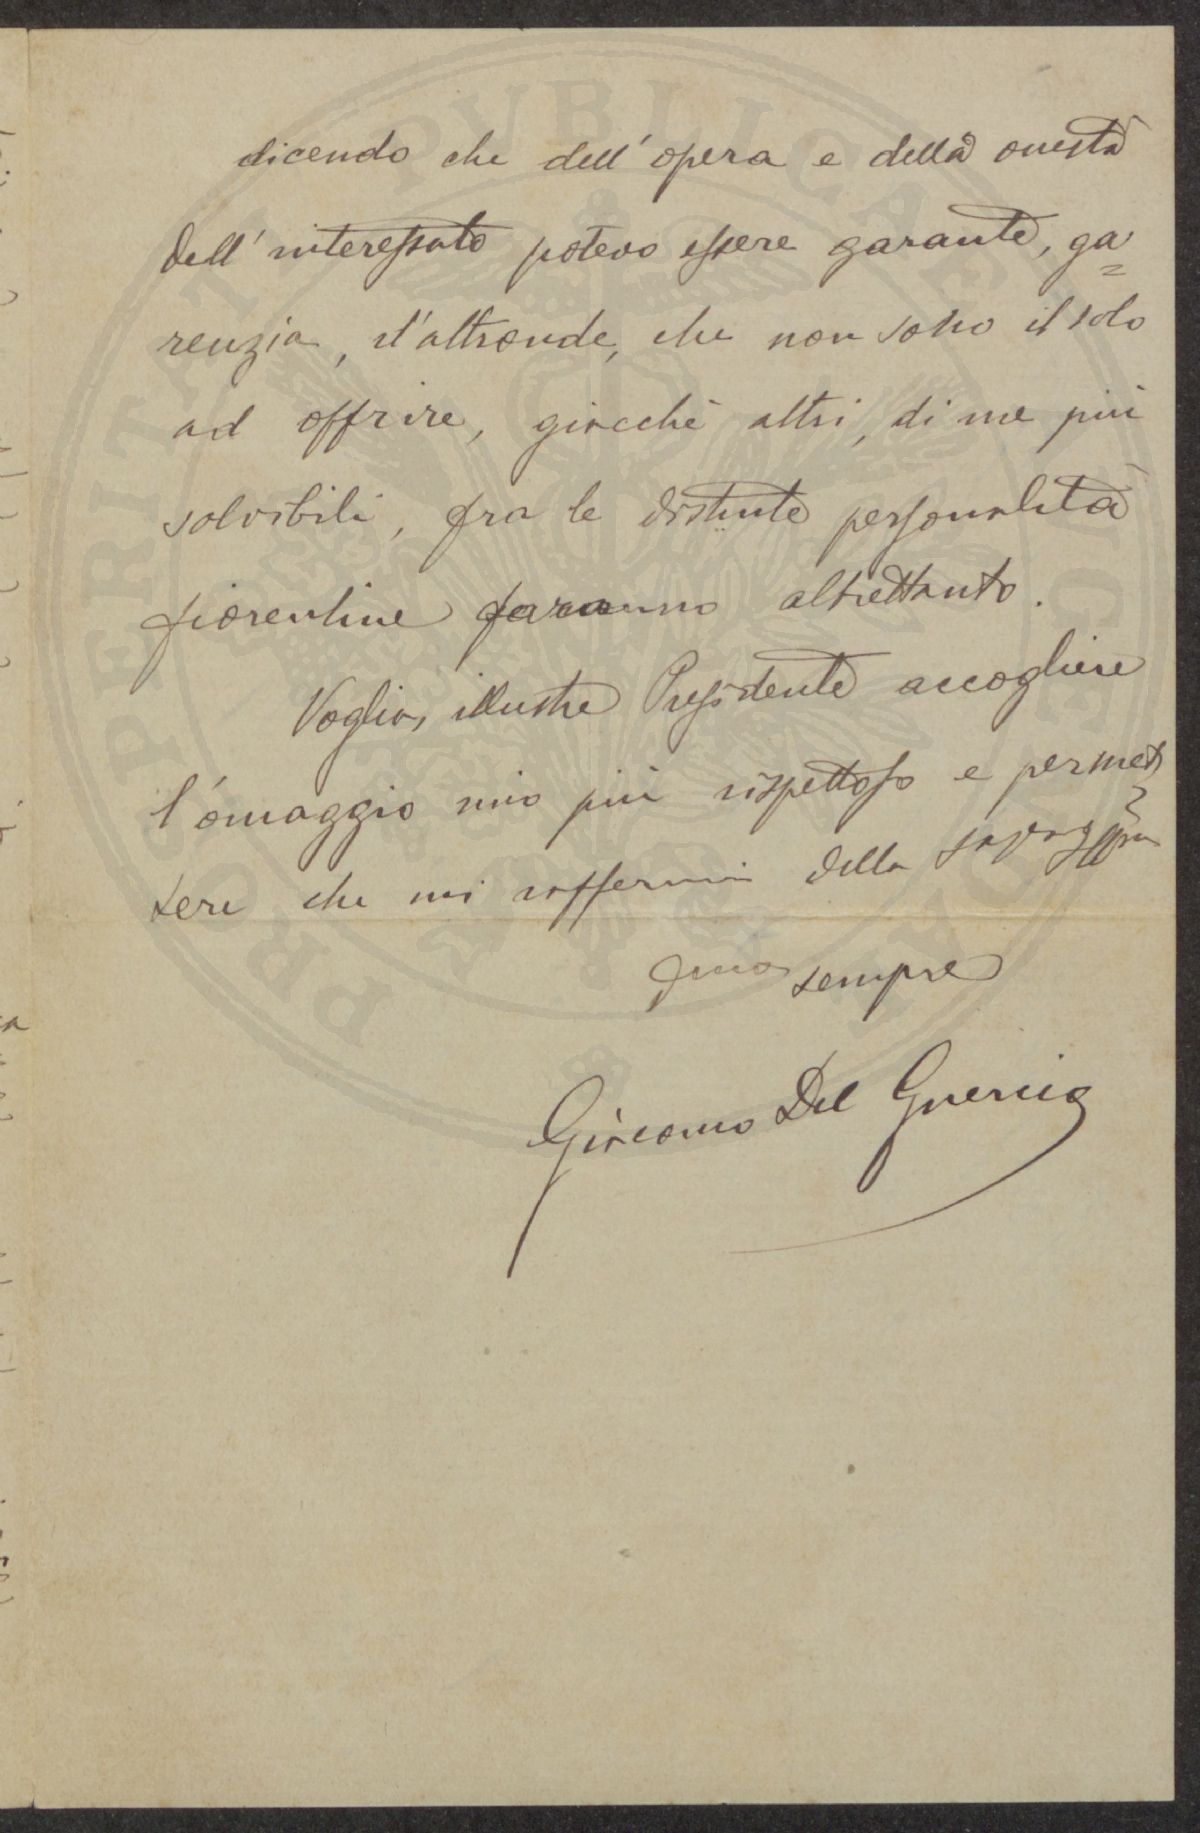 dicendo che dell'opera e della onestà
dell'interessato potevo essere garante, ga=
renzia, d'altronde, che non sono il solo
ad offrire, giacchè altri, di me più
solvibili, fra le distinte personalità
fiorentine faranno altrettanto.
Voglia, illustre Presidente accogliere
l'omaggio mio più rispettoso e permet=
tere che mi raffermi della
sempre
Giacomo Del Guercio
PROSPERITATI PVBLICAE